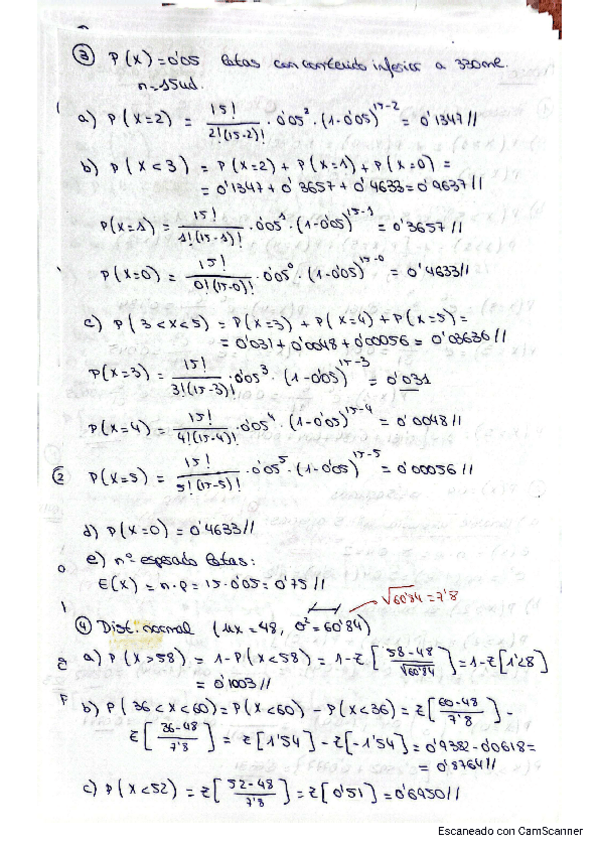 ③ P(X)=0'05 latas con contenido inferior a 330ml.
n=15ud.
a) P(X=2) = 15!/2!(15-2)! · 0'05² · (1-0'05)^15-2 = 0'1347//
b) P(X<3) = P(X=2) + P(X=1) + P(X=0) =
= 0'1347+0'3657+0'4633=0'9637//
P(X=1) = 15!/1!(15-1)! · 0'05¹ · (1-0'05)^15-1 = 0'3657//
P(X=0) = 15!/0!(15-0)! · 0'05⁰ · (1-0'05)^15-0 = 0'4633//
c) P(3<x<5) = P(X=3) + P(X=4) + P(X=5) =
= 0'031+0'0048+0'00056= 0'03636//
P(X=3) = 15!/3!(15-3)! · 0'05³ · (1-0'05)^15-3 = 0'031
P(X=4) = 15!/4!(15-4)! · 0'05⁴ · (1-0'05)^15-4 = 0'0048//
② P(X=5) = 15!/5!(15-5)! · 0'05⁵ · (1-0'05)^15-5 = 0'00056//
d) P(X=0) = 0'4633//
e) nº esperado latas:
E(X) = n·p = 15·0'05= 0'75//
√60'84=7'8
④ Dist. normal (μx=48, σ²=60'84)
a) P(X>58) = 1-P(X<58) = 1-Z[58-48/√60'84] = 1-Z[1'28]
= 0'1003//
b) P(36<X<60)=P(X<60) - P(X<36) = Z[60-48/7'8] -
Z[36-48/7'8] = Z[1'54] - Z[-1'54] = 0'9382-0'0618=
= 0'8764//
c) P(X<52) = Z[52-48/7'8] = Z[0'51] = 0'6950//
Escaneado con CamScanner